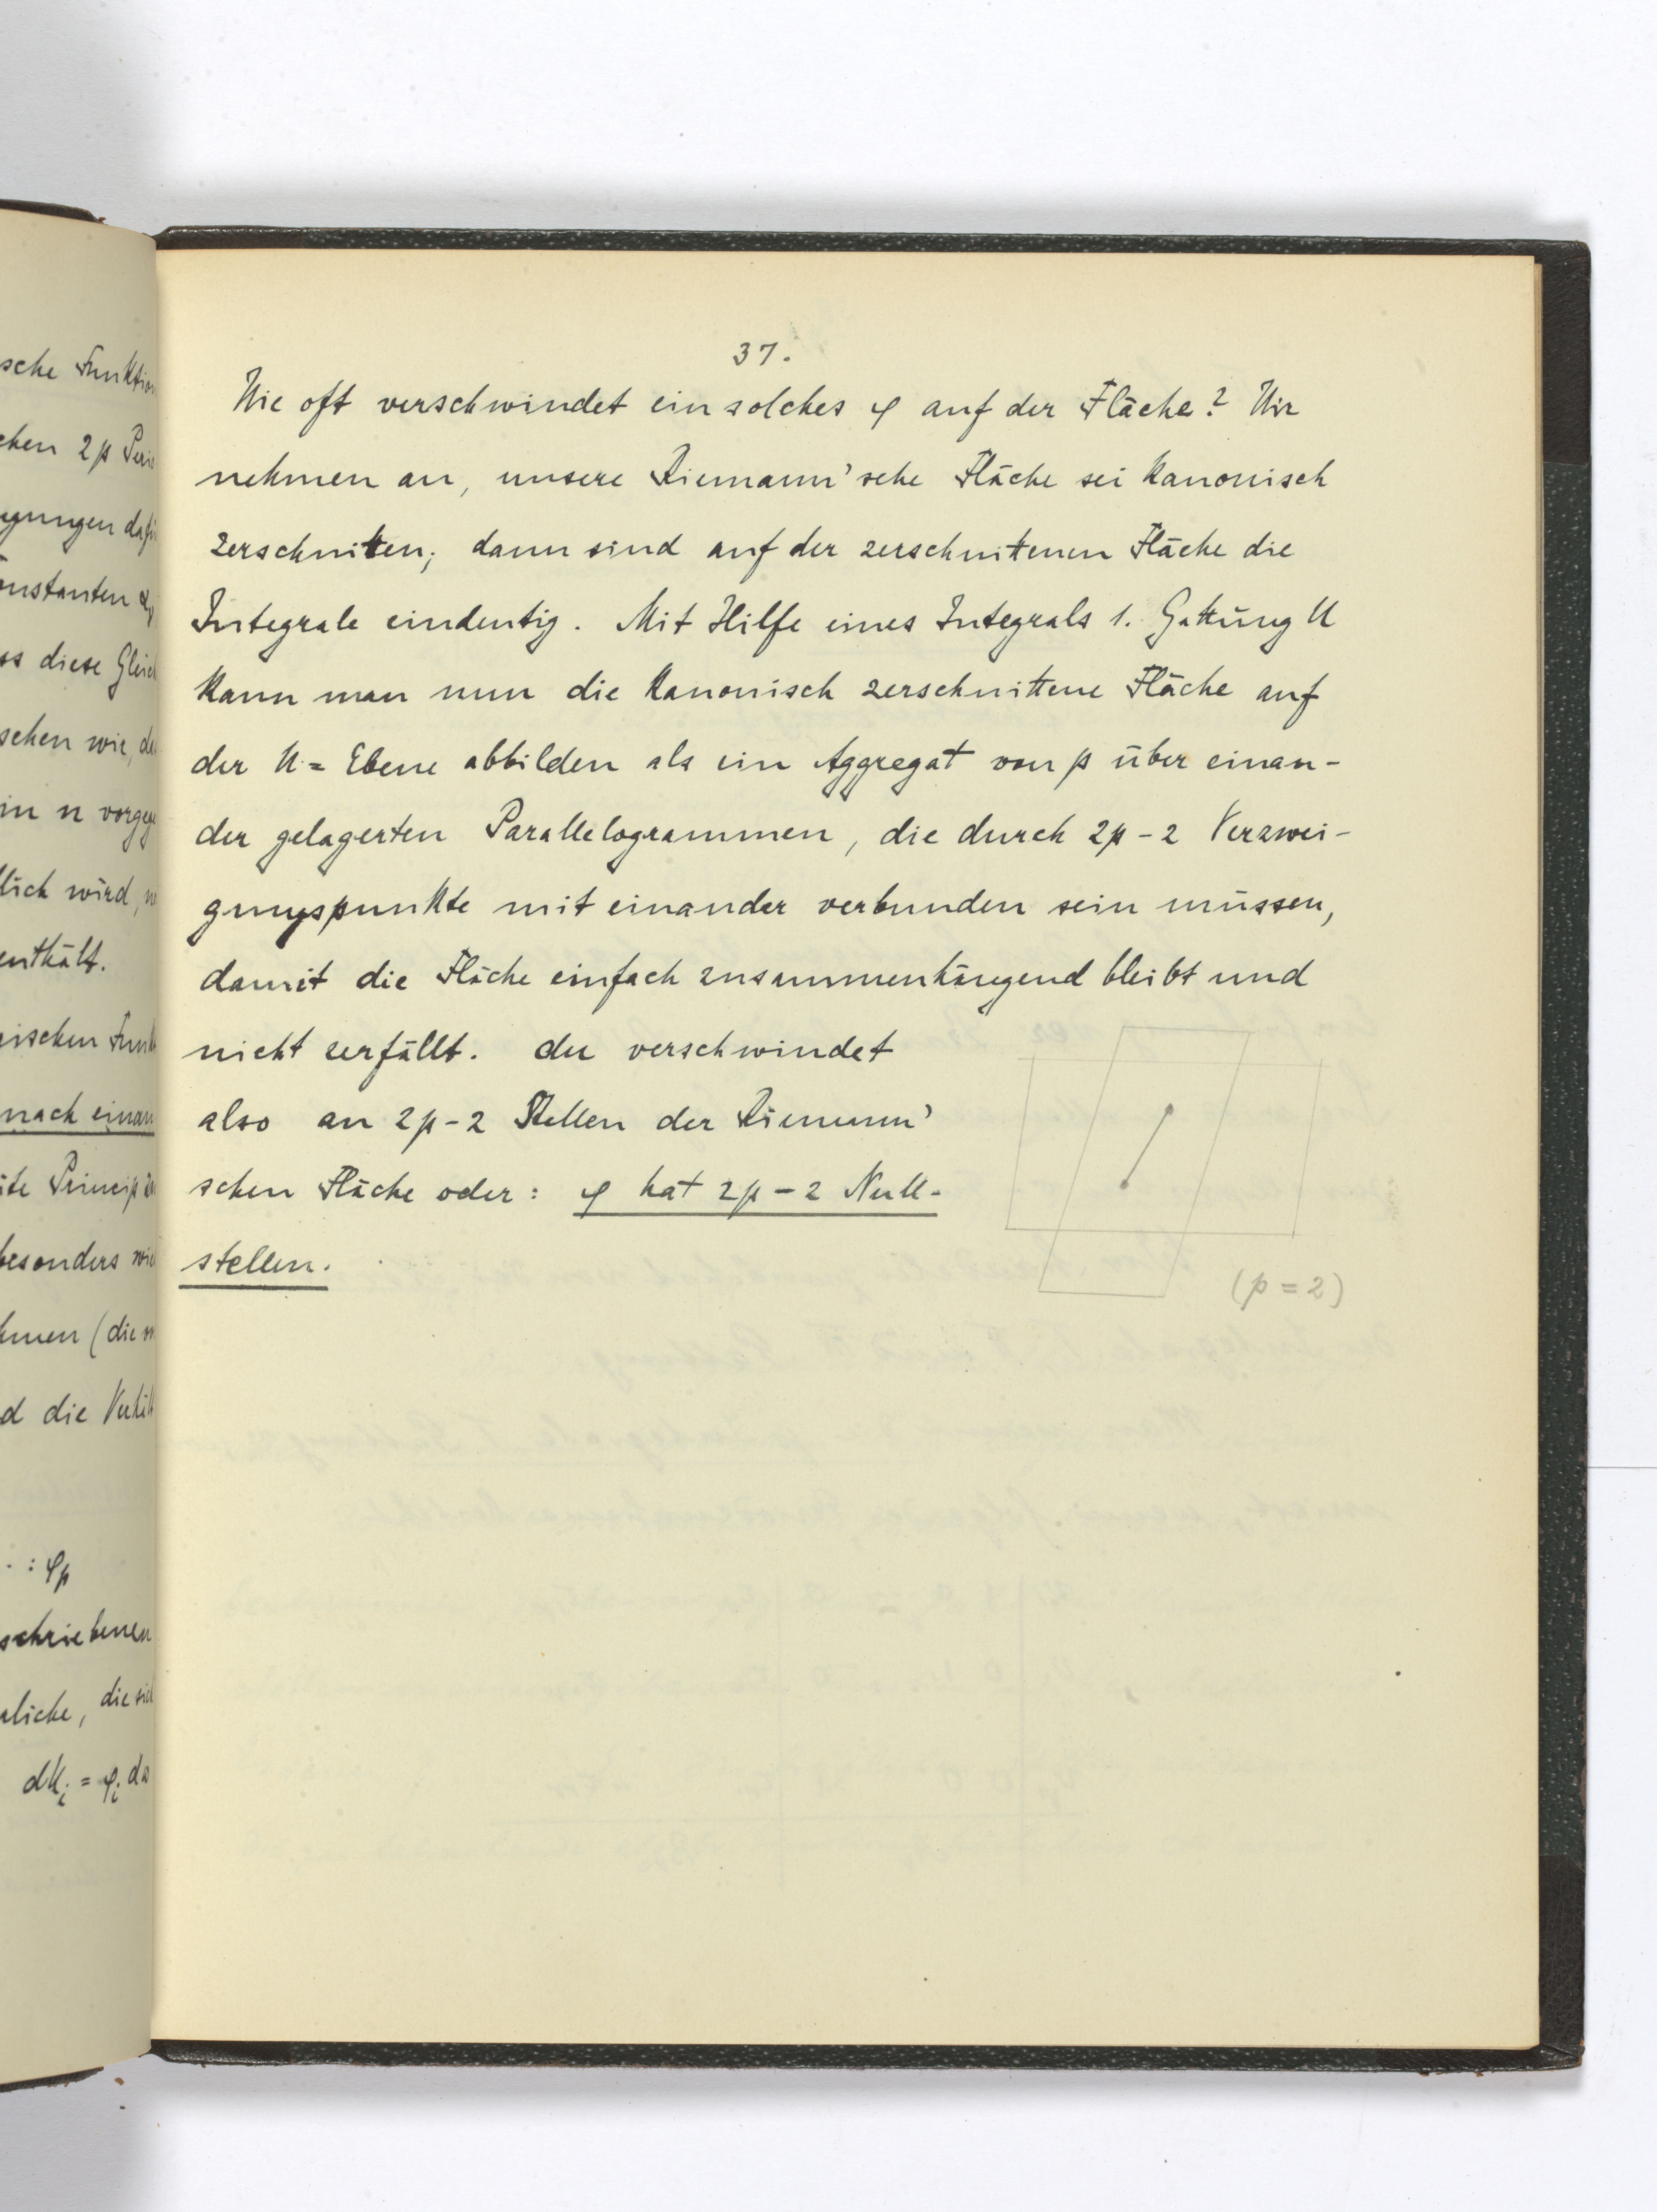 sche Funktion
chen 2p Peri
gungen dafü
onstanten α
ss diese Gleich
sehen wie, de
in n vorgege
lich wird, 
enthält.
gischen Funk
nach einan
ite Princip
besonders wi
hmen (die
d die Verhält
· : φp
schriebenen
rliche, die sich
dUi = φi dω
37.
Wie oft verschwindet ein solches φ auf der Fläche? Wir
nehmen an, unsere Riemann'sche Fläche sei kanonisch
zerschnitten; dann sind auf der zerschnittenen Fläche die
Integrale eindeutig. Mit Hilfe eines Integrals 1. Gattung U
kann man nun die kanonisch zerschnittene Fläche auf
der U = Ebene abbilden als ein Aggregat von p über einan-
der gelagerten Parallelogrammen, die durch 2p-2 Verzwei-
gungspunkte mit einander verbunden sein müssen,
damit die Fläche einfach zusammenhängend bleibt und
nicht zerfällt. du verschwindet
also an 2p-2 Stellen der Riemann'
schen Fläche oder: φ hat 2p-2 Null-
stellen.
(p=2)